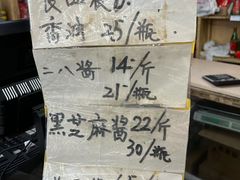 香油 25/瓶
二八酱 14/斤
21/瓶
黑芝麻酱 22/斤
30/瓶